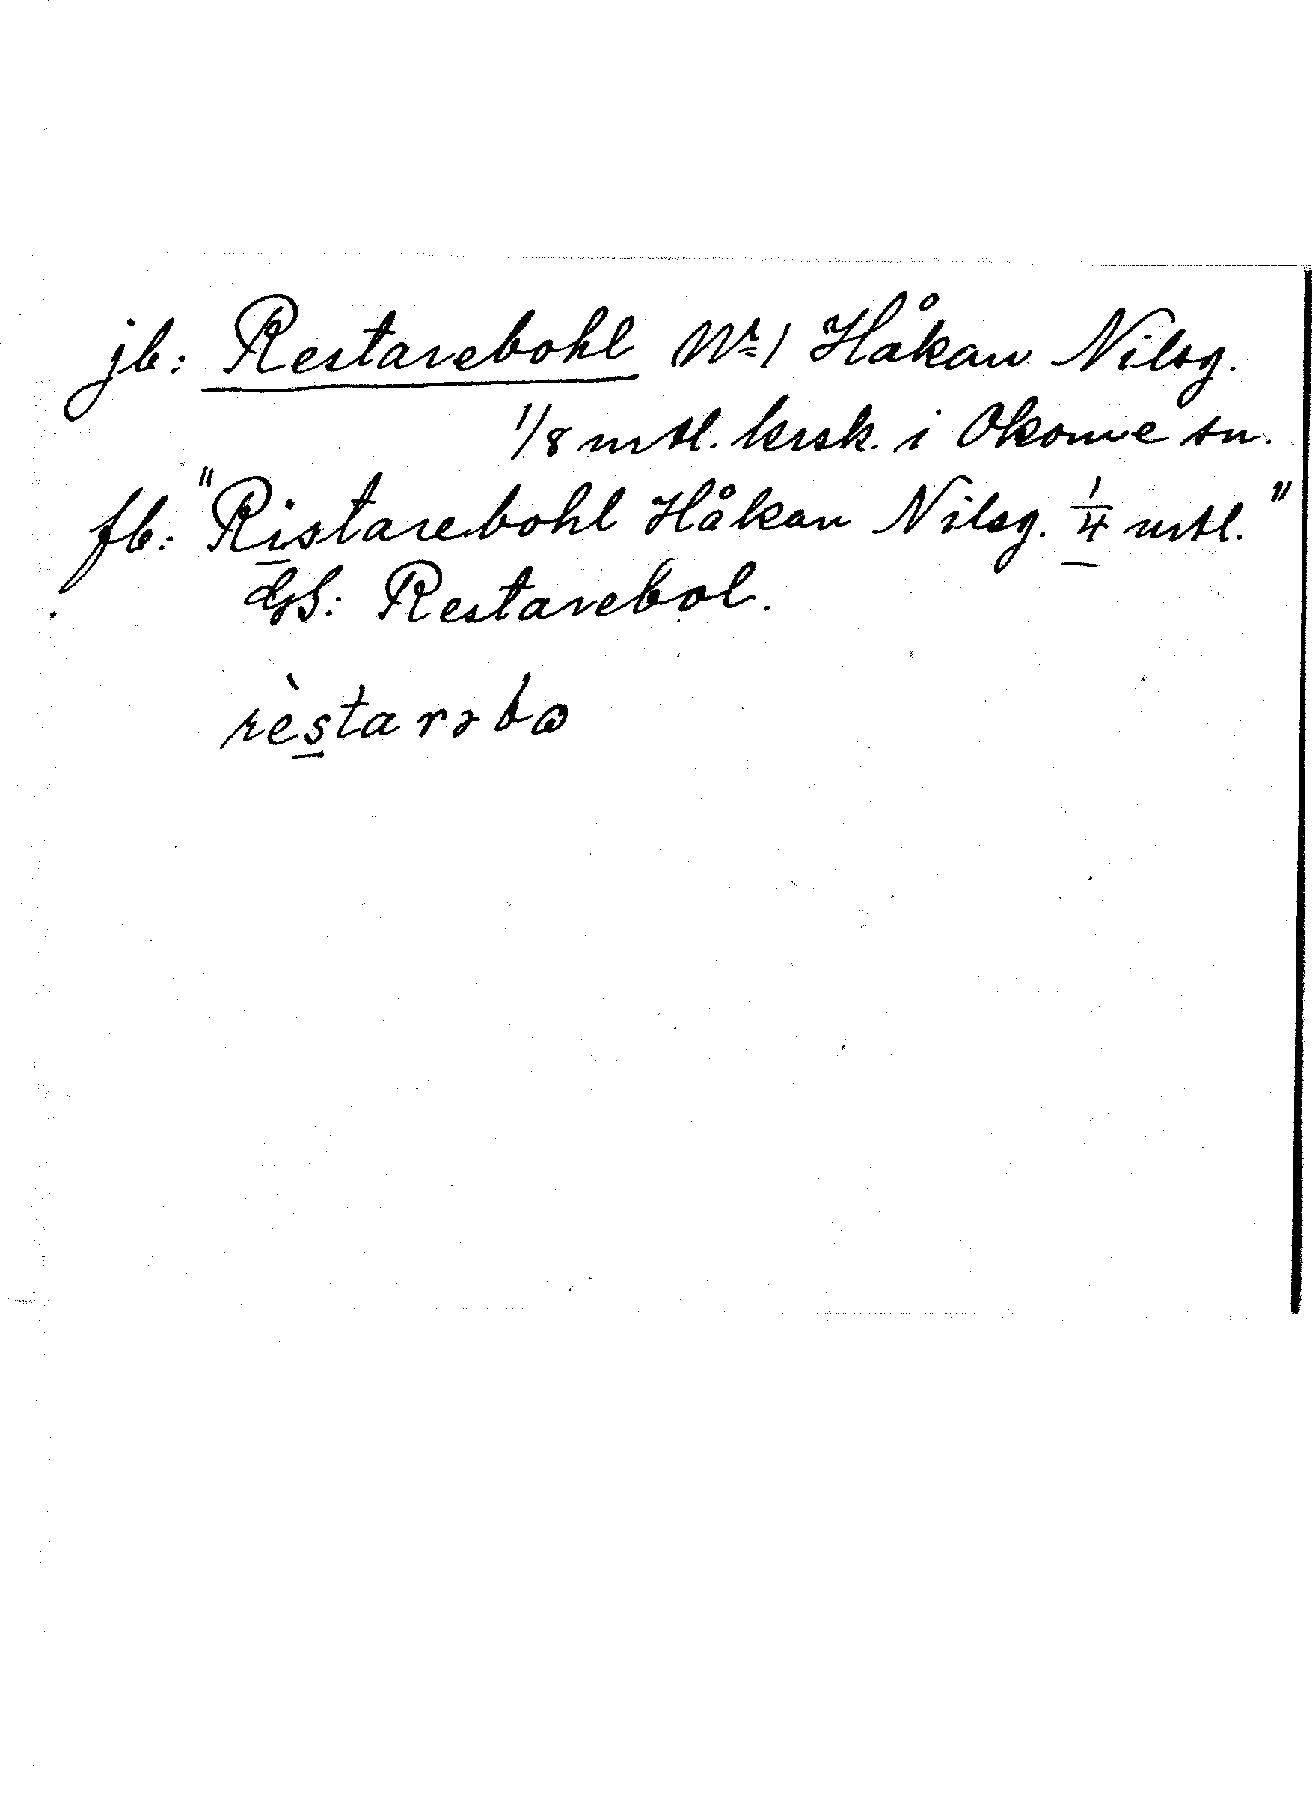 jb: Restarebohl No 1 Håkan Nilsg.
1/8 mtl. krsk. i Okome sn.
fb: "Ristarebohl Håkan Nilsg. 1/4 mtl."
Restarebol.
rèstarəbω